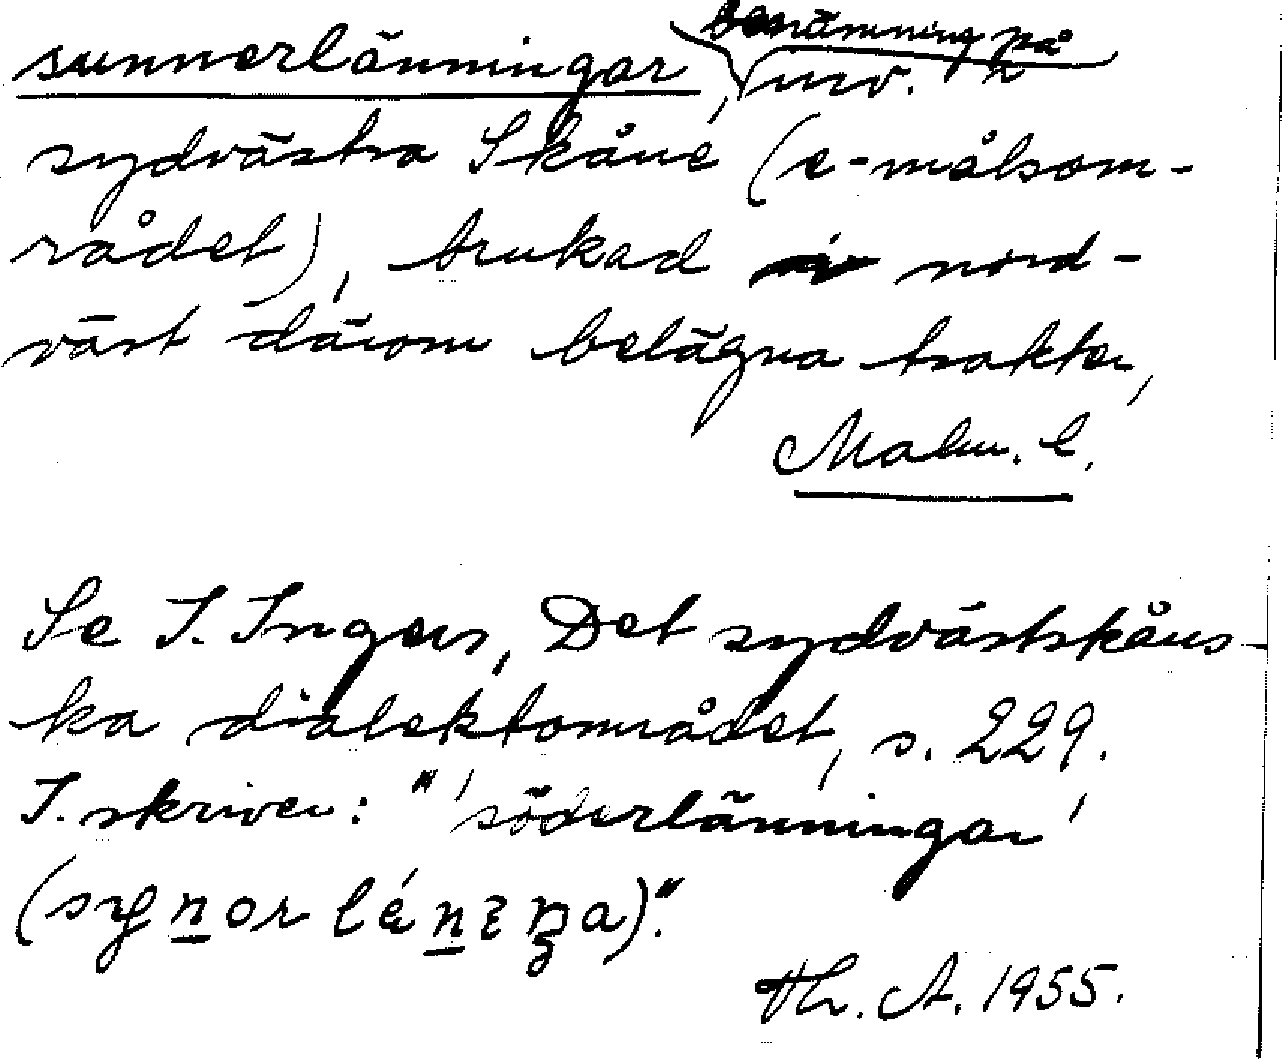 sunnerlänningar, benämning på inv. i
sydvästra Skåne (e-målsom-
rådet), brukad i nord-
väst därom belägna trakter,
Malm. l.
Se I. Ingers, Det sydvästskåns-
ka dialektområdet, s. 229.
I. skriver: "'söderlänningar'
Th. A. 1955.